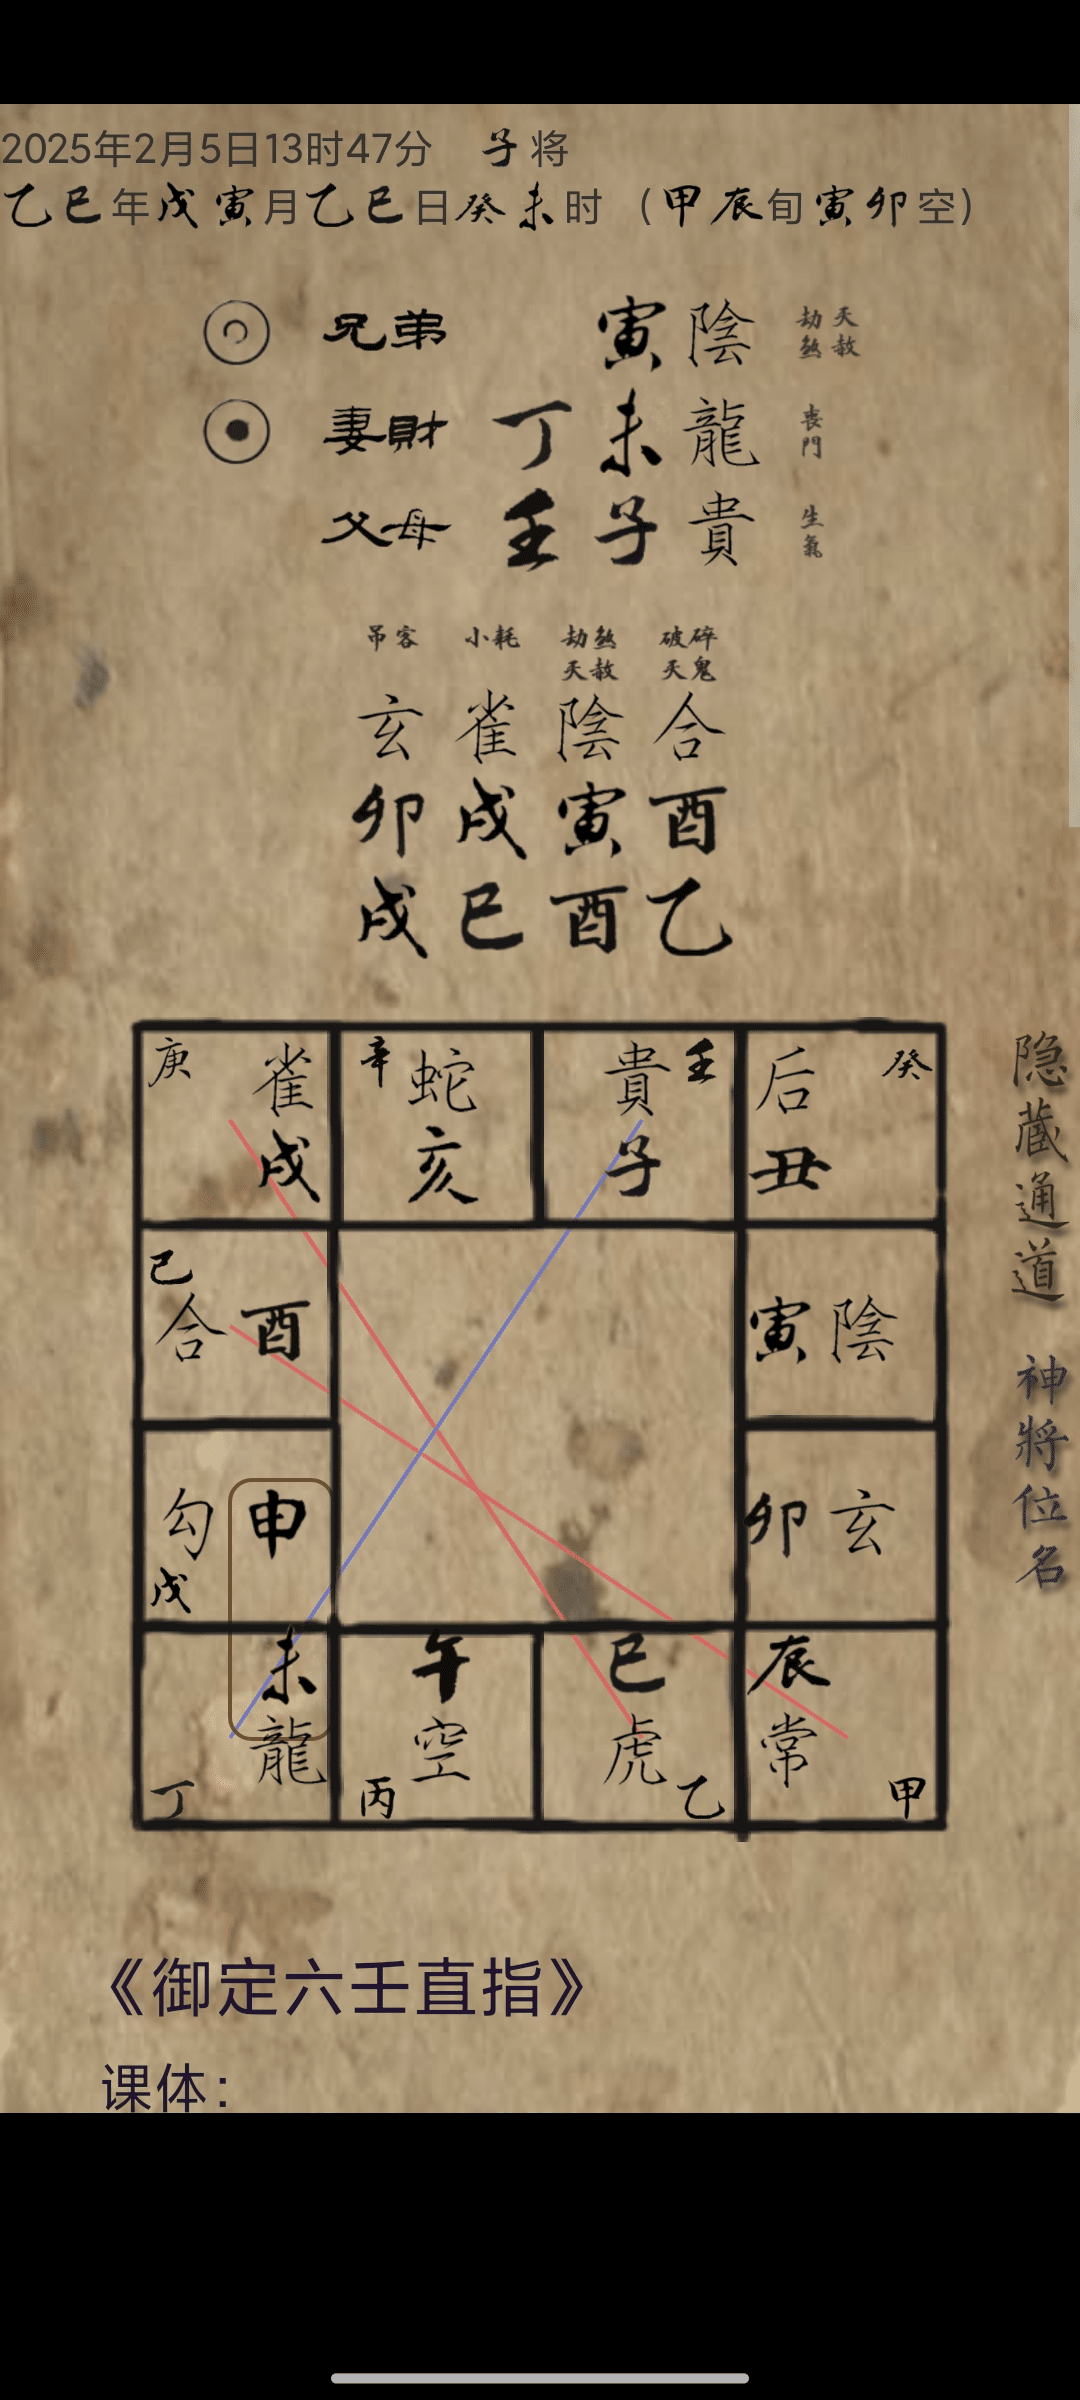 2025年2月5日13时47分 子将
乙巳年戊寅月乙巳日癸未时 (甲辰旬寅卯空)
兄弟 寅陰 劫煞 天赦
妻財 丁未龍 喪門
父母 壬子貴 生氣
吊客 小耗 劫煞 破碎
天赦 天鬼
玄 雀 陰 合
卯 戌 寅 酉
戌 巳 酉 乙
庚 雀 辛 蛇 貴 壬 后 癸
戌 亥 子 丑
己
合 酉 寅 陰
勾 申 卯 玄
戊
未 午 巳 辰
龍 空 虎 常
丁 丙 乙 甲
隐藏通道
神將位名
《御定六壬直指》
课体: